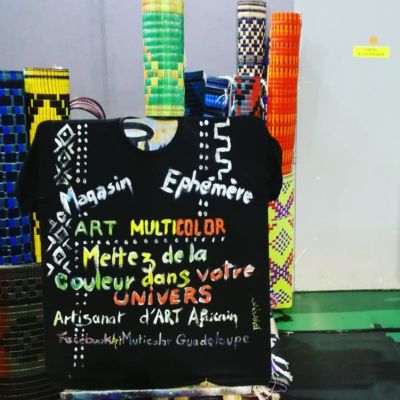 Magasin Ephémère
ART MULTICOLOR
Mettez de la
Couleur dans votre
UNIVERS
Artisanat d'ART Africain
Facebook Art Multicolor Guadeloupe